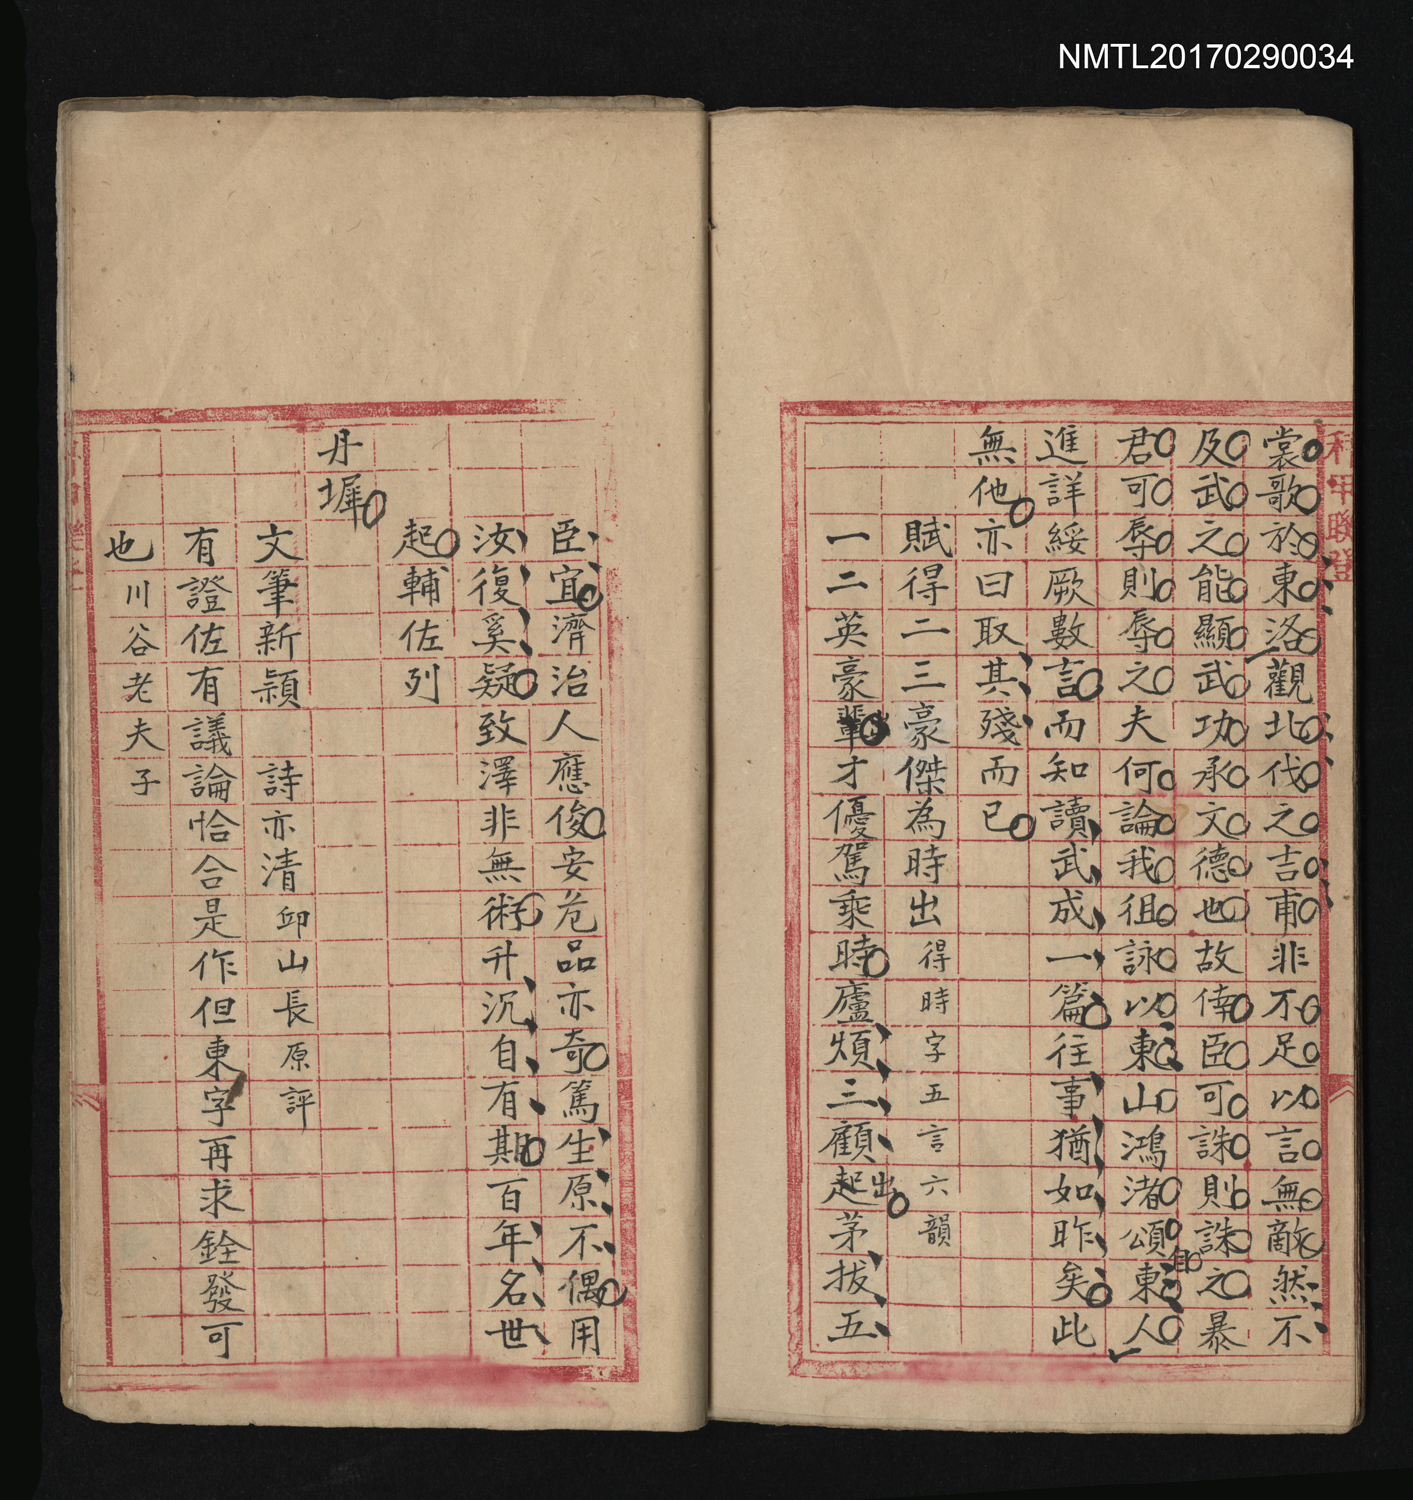 NMTL20170290034
科甲聯登
裳歌於東洛觀北伐之吉甫非不足以言無敵然不
及武之能顯武功承文德也故俦臣可誅則誅之暴
君可辱則辱之夫何論我徂詠以東山鴻渚頌自東人
進詳綏厥數言而知讀武成一篇往事猶如昨矣此
無他亦曰取其殘而已
賦得二三豪傑為時出得時字五言六韻
一二英豪輩才優駕乘時廬煩三顧出茅拔五
臣宜濟治人應俊安危品亦奇篤生原不偶用
汝復奚疑致澤非無術升沉自有期百年名世
起輔佐列
丹墀
文筆新穎 詩亦清 邱山長原評
有證佐有議論恰合是作但東字再求銓發可
也川谷老夫子